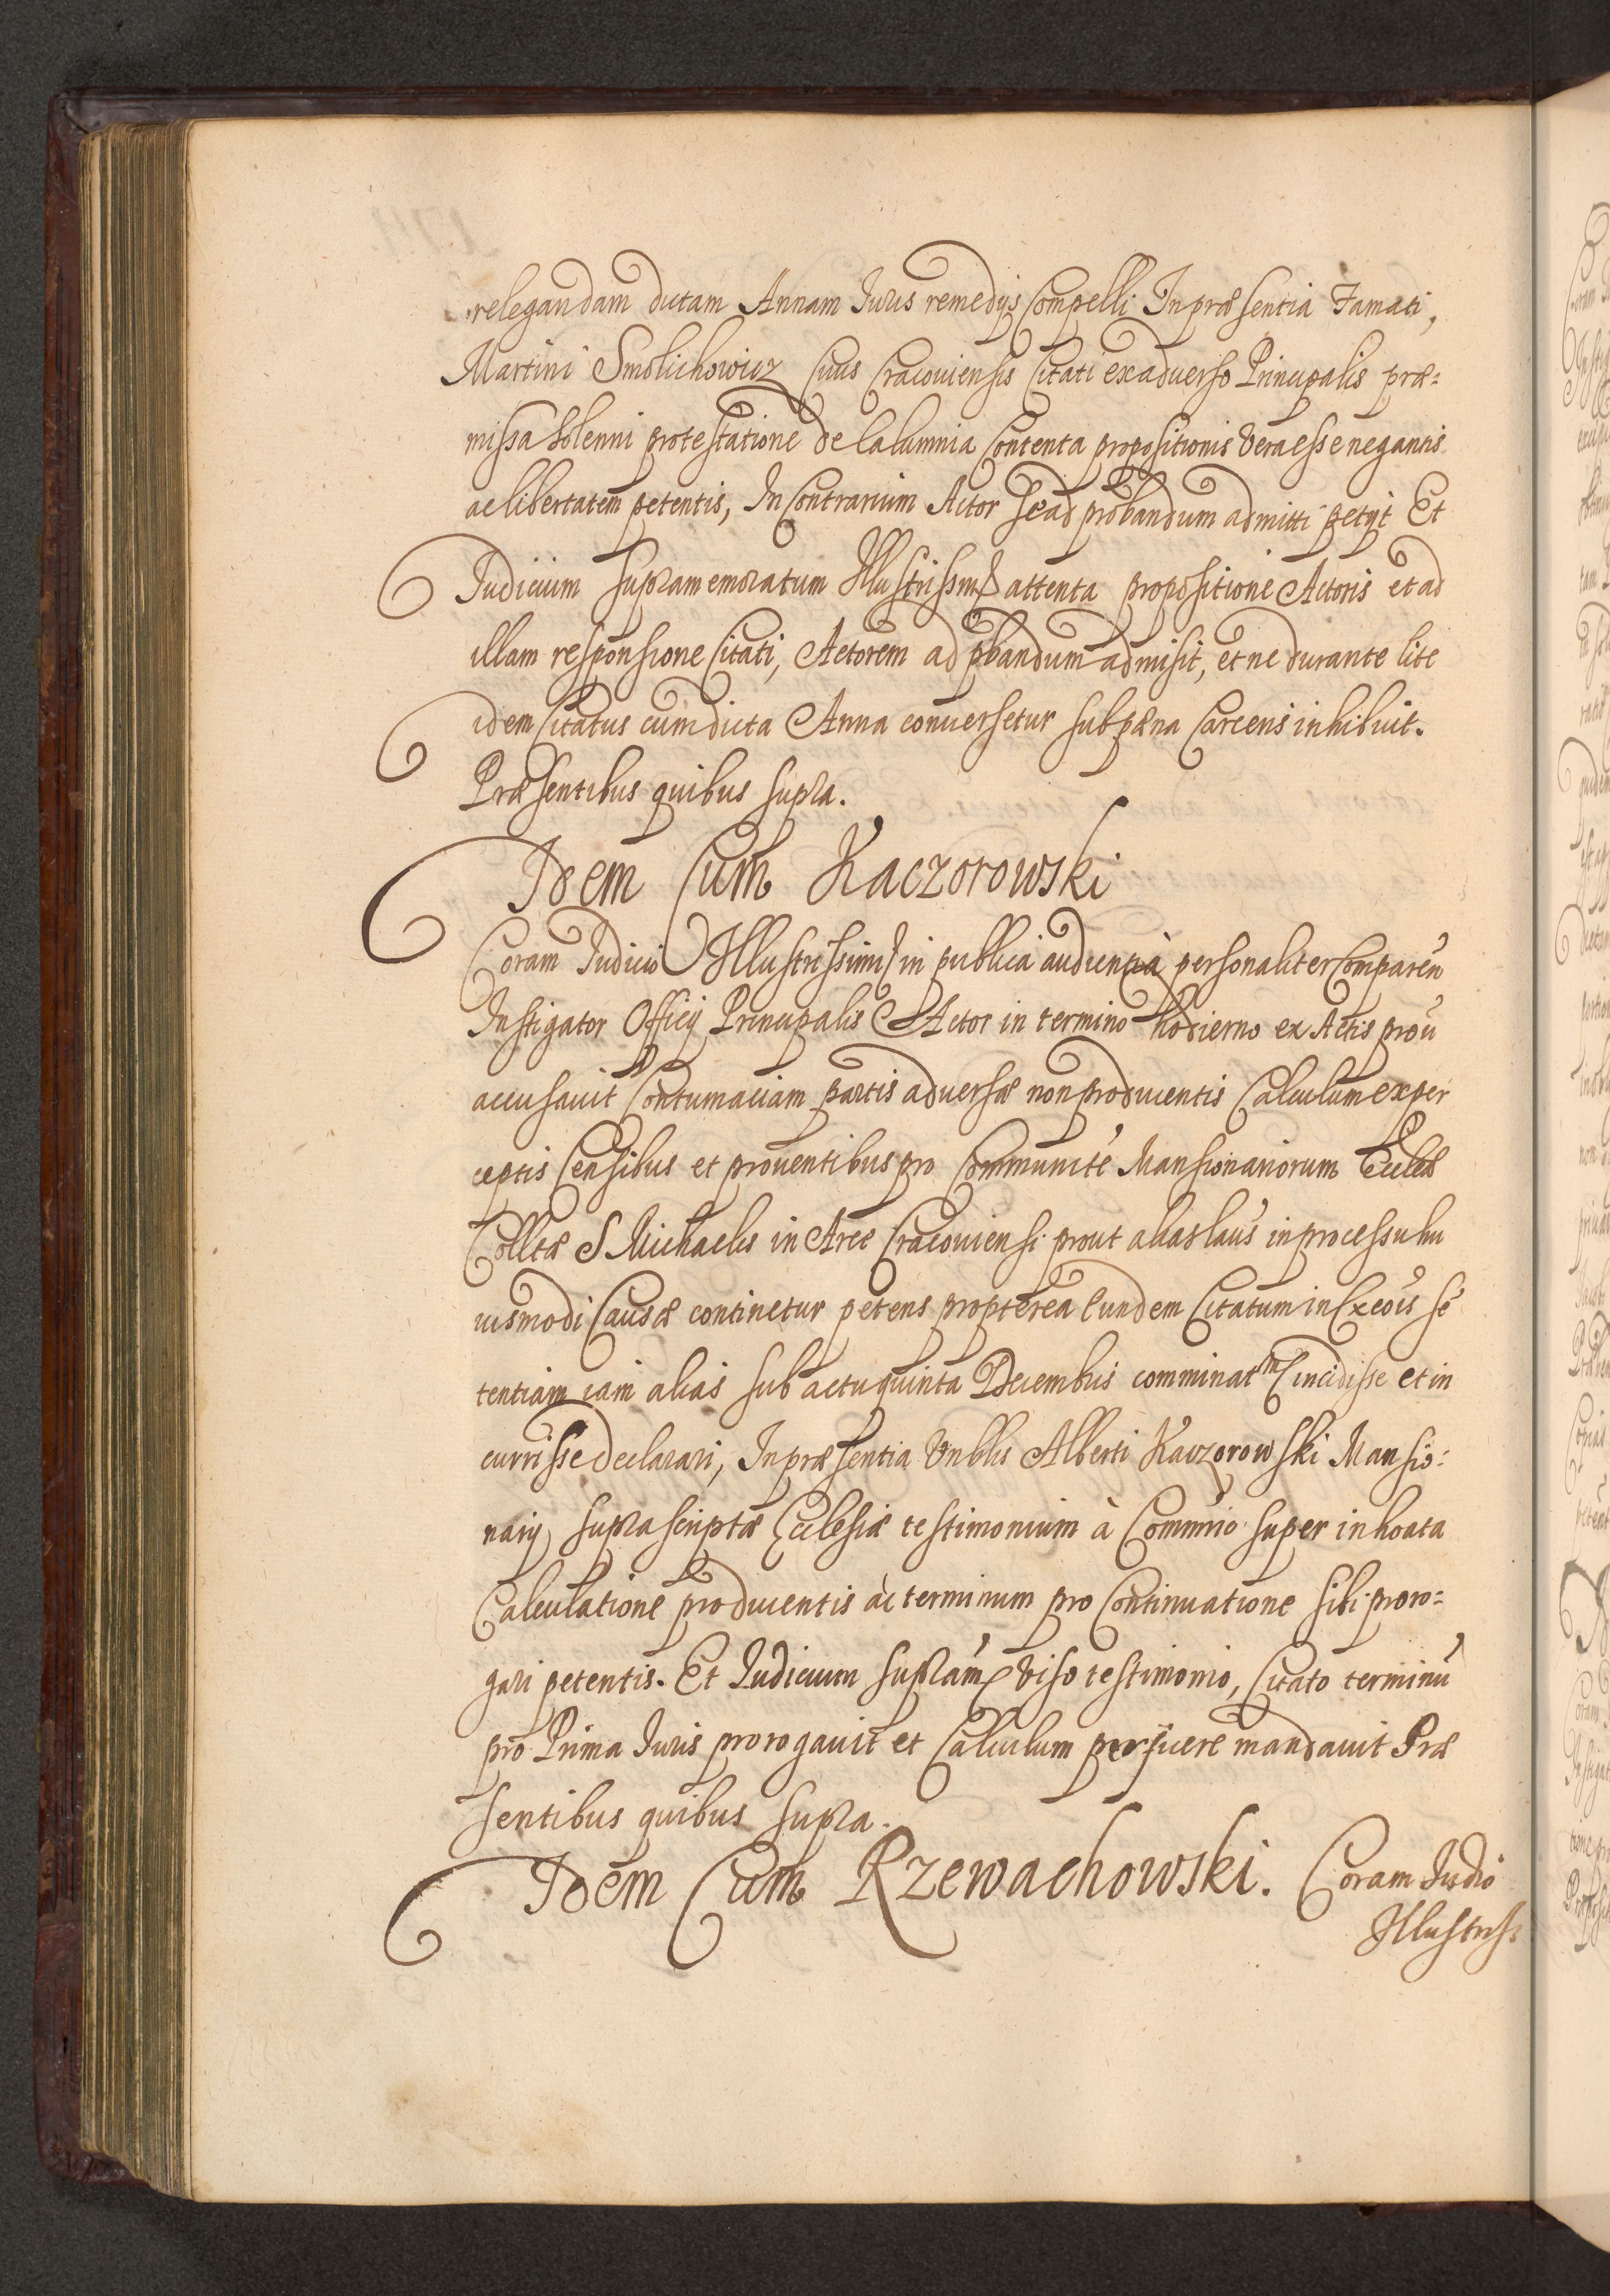 relegandam dictam Annam Iuris remedijs Compelli. In præsentia Famati,
Martini Smolichowicz Civis Cracoviensis Citati ex adverso Principalis præ=
missa solenni protestatione de Calumnia Contenta propositionis vera esse negantis
ac libertatem petentis, In Contrarium Actor se ad probandum admitti petyt Et
Iudicium supramemoratum Illustrissimi attenta propositione Actoris et ad
illam responsione Citati, Actorem ad pbandum admisit, et ne durante lite
idem Citatus cum dicta Anna conversetur sub pæna Carceris inhibuit.
Præsentibus quibus supra.
Idem Cum Kaczorowski
Coram Iudicio Illustrissimi in publica audientia personaliter Comparēn
Instigator Officij Principalis Actor in termino hodierno ex Actis proū
accusavit Contumaciam partis adversæ non producentis Calculum ex per
ceptis Censibus et proventibus pro Communitē Mansionariorum Eccleæ
Colltæ S Michaelis in Arce Cracoviensi prout alias in processu hu
iusmodi Causæ continetur petens propterea Eundem Citatum in Excōis sē
tentiam iam alias sub actu quinta Decembris comminat incidisse et in
currisse declarari, In præsentia Vnblis Alberti Kaczorowski Mansio=
narij suprascriptæ Ecclesiæ testimonium à Commrīo super inhoata
Calculatione producentis ac terminum pro Continuatione sibi proro=
gari petentis. Et Iudicium supram viso testimonio, Citato terminū
pro Prima Iuris prorogavit et Calculum perficere mandavit Præ
sentibus quibus supra.
Idem Cum Rzewachowski. Coram Iudio
Illustriss